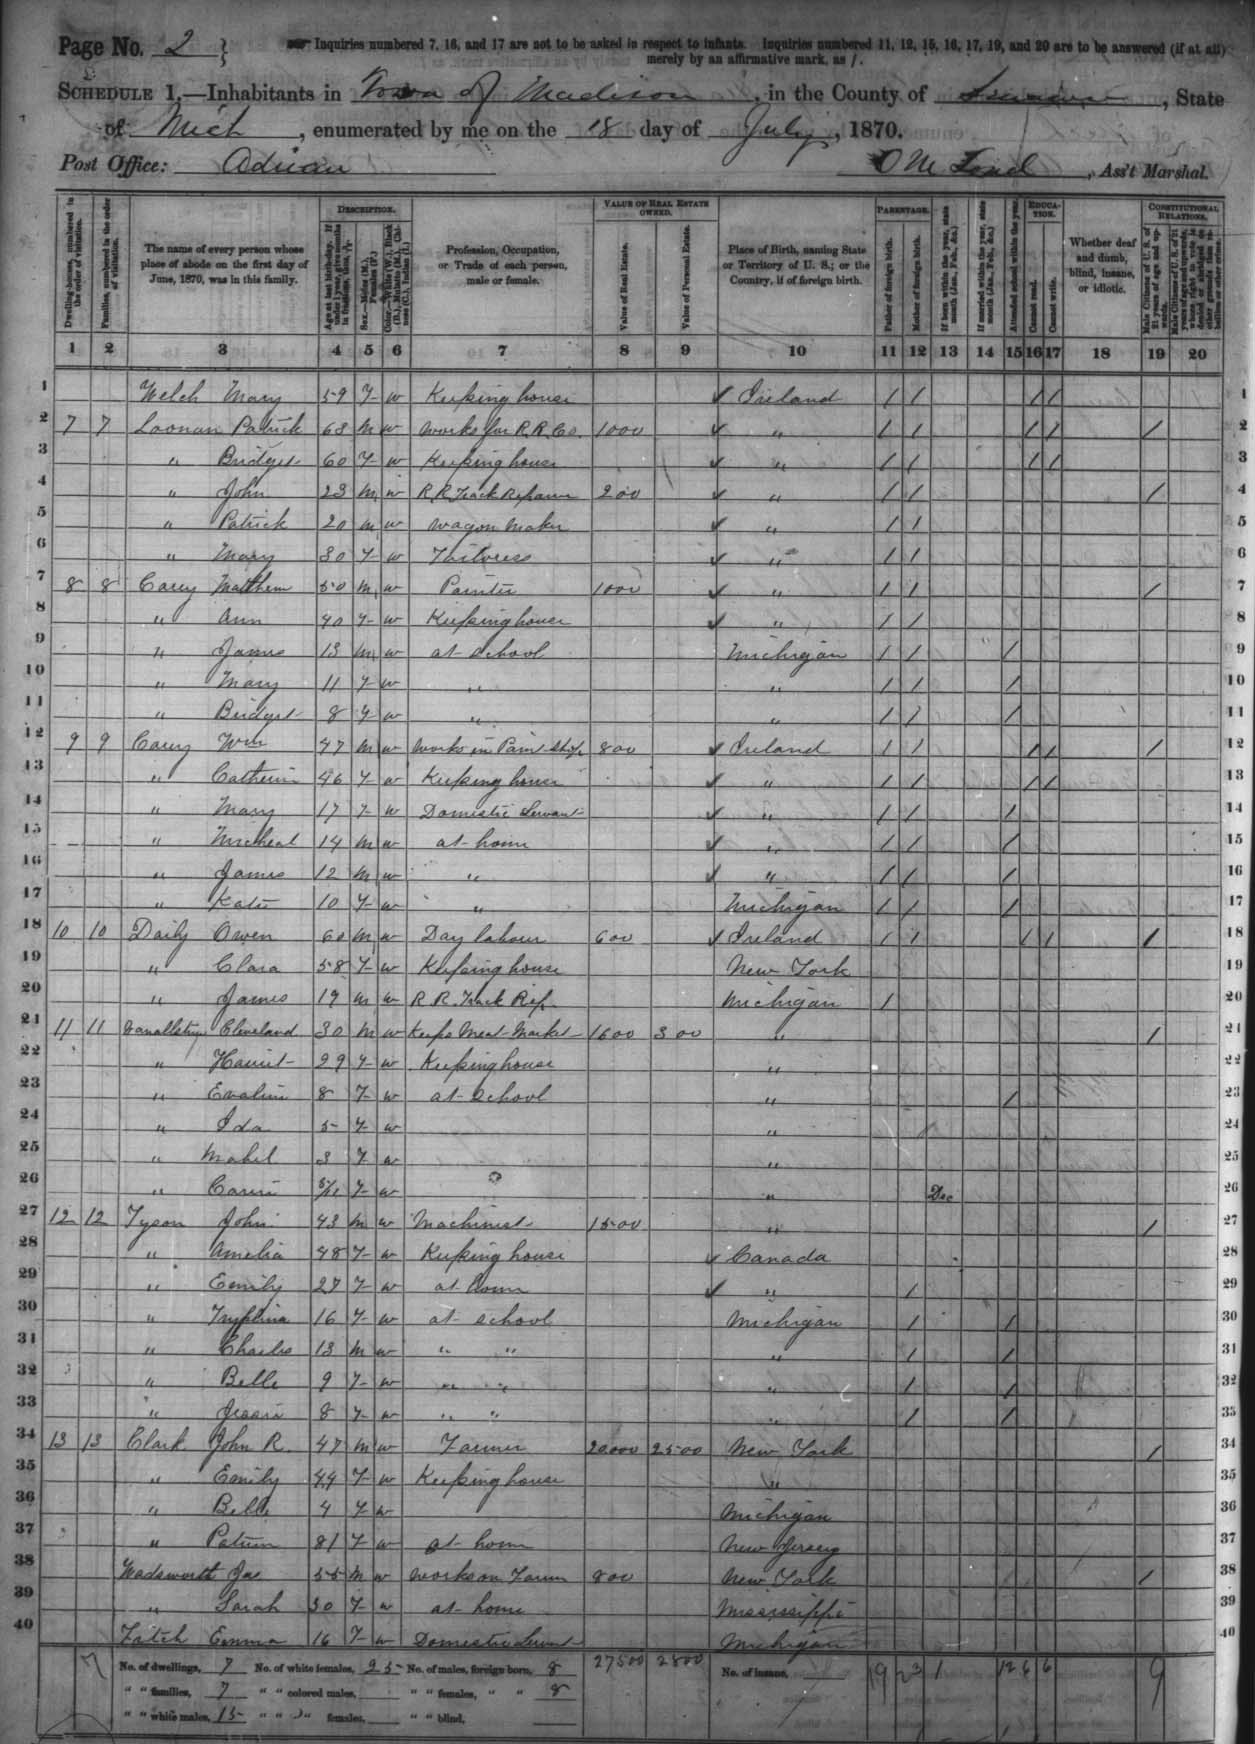 Page No. 2 } Inquiries numbered 7, 16, and 17 are not to be asked in respect to infants. Inquiries numbered 11, 12, 15, 16, 17, 19, and 20 are to be answered (if at all)
merely by an affirmative mark, as /.
SCHEDULE 1.—Inhabitants in Town of Madison, in the County of Lenawee, State
of Mich, enumerated by me on the 18 day of July, 1870.
Post Office: Adrian , Ass't Marshal.
DESCRIPTION. VALUE OF REAL ESTATE OWNED. PARENTAGE. EDUCATION. CONSTITUTIONAL RELATIONS.
Dwelling-houses, numbered in the order of visitation. Families, numbered in the order of visitation. The name of every person whose place of abode on the first day of June, 1870, was in this family. Age at last birth-day. If under 1 year, give months in fractions, thus, Sex.—Males (M.), Females (F.) Color.—White (W.), Black (B.), Mulatto (M.), Chinese (C.), Indian (I.) Profession, Occupation, or Trade of each person, male or female. Value of Real Estate. Value of Personal Estate. Place of Birth, naming State or Territory of U. S.; or the Country, if of foreign birth. Father of foreign birth. Mother of foreign birth. If born within the year, state month (Jan., Feb., &c.) If married within the year, state month (Jan., Feb., &c.) Attended school within the year. Cannot read. Cannot write. Whether deaf and dumb, blind, insane, or idiotic. Male Citizens of U. S. of 21 years of age and upwards. Male Citizens of U. S. of 21 years of age and upwards, whose right to vote is denied or abridged on other grounds than rebellion or other crime.
1 2 3 4 5 6 7 8 9 10 11 12 13 14 15 16 17 18 19 20
1 Welch Mary 59 F w Keeping house ✓ Ireland / / / / 1
2 7 7 Loonan Patrick 63 M w Works for R.R. Co. 1000 ✓ " / / / / / 2
3 " Bridget 60 F w Keeping house ✓ " / / / / 3
4 " John 23 M w R.R. Track Repairer 200 ✓ " / / / 4
5 " Patrick 20 M w Wagon Maker ✓ " / / 5
6 " Mary 30 F w Tailoress ✓ " / / 6
7 8 8 Carey Matthew 50 M w Painter 1000 ✓ " / / / 7
8 " Ann 40 F w Keeping house ✓ " / / 8
9 " James 13 M w at school Michigan / / / 9
10 " Mary 11 F w " " / / / 10
11 " Bridget 8 F w " " / / / 11
12 9 9 Carey Wm 47 M w Works in Paint Shop 800 ✓ Ireland / / / / / 12
13 " Catherine 46 F w Keeping house ✓ " / / / / 13
14 " Mary 17 F w Domestic Servant ✓ " / / / 14
15 " Micheal 14 M w at home ✓ " / / / 15
16 " James 12 M w " ✓ " / / / 16
17 " Katie 10 F w " Michigan / / / 17
18 10 10 Daily Owen 60 M w Day labour 600 ✓ Ireland / / / / / 18
19 " Clara 58 F w Keeping house New York 19
20 " James 19 M w R R. Track Rep. Michigan / 20
21 11 11 Cleveland 30 M w Keeps Meat Market 1600 300 " / 21
22 " Harriet 29 F w Keeping house " 22
23 " Evaline 8 F w at school " / 23
24 " Ida 5 F w " 24
25 " Mabel 3 F w " 25
26 " Carrie F w " Dec 26
27 12 12 Tyson John 43 M w Machinist 1500 " / 27
28 " Amelia 48 F w Keeping house ✓ Canada 28
29 " Emily 27 F w at home ✓ " / 29
30 " Tryphina 16 F w at school Michigan / / 30
31 " Charles 13 M w " " " / / 31
32 " Belle 9 F w " " " / / 32
33 " Jessie 8 F w " " " / / 33
34 13 13 Clark John R. 47 M w Farmer 20000 2500 New York / 34
35 " Emily 44 F w Keeping house " 35
36 " Belle 4 F w Michigan 36
37 " 81 F w at home New Jersey 37
38 Wadsworth Jas 55 M w Works on Farm 800 New York / 38
39 " Sarah 50 F w at home Mississippi 39
40 Fitch Emma 16 F w Domestic Servant Michigan 40
7 No. of dwellings, 7 No. of white females, 25 No. of males, foreign born, 8 27500 2800 No. of insane, 19 23 1 12 6 6 9
" " families, 7 " " colored males, " " females, " " 8
" " white males, 15 " " " females, " " blind,